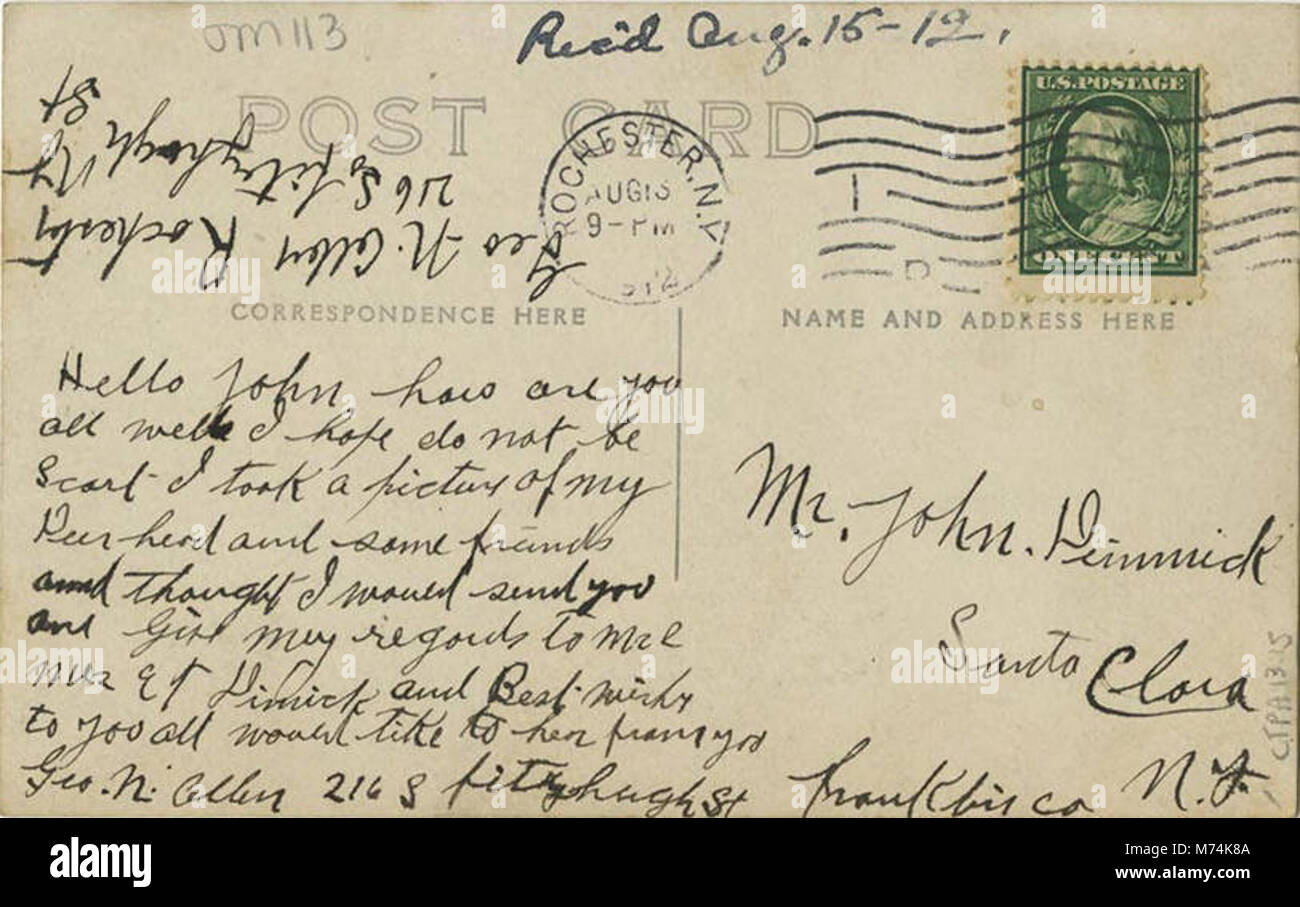 OM113
Rec'd Aug. 15-12.
POST CARD
U.S. POSTAGE
ONE CENT
ROCHESTER, N.Y.
AUG 13
9-PM
1912
D
Geo N. Allen Rochester
216 S Fitzhough NY
St
CORRESPONDENCE HERE
NAME AND ADDRESS HERE
Hello John how are you
all well I hope do not be
Scart I took a picture of my
Deer head and some friends
and thought I would send you
one Give my regards to Mr &
Mrs Dimick and Best wishs
to you all would like to her from you
Geo. N. Allen 216 S fitzhughSt
Mr. John. Dimmick
Santa Clara
Frankling co N.Y.
CTPA1315
alamy
alamy
www.alamy.com
M74K8A